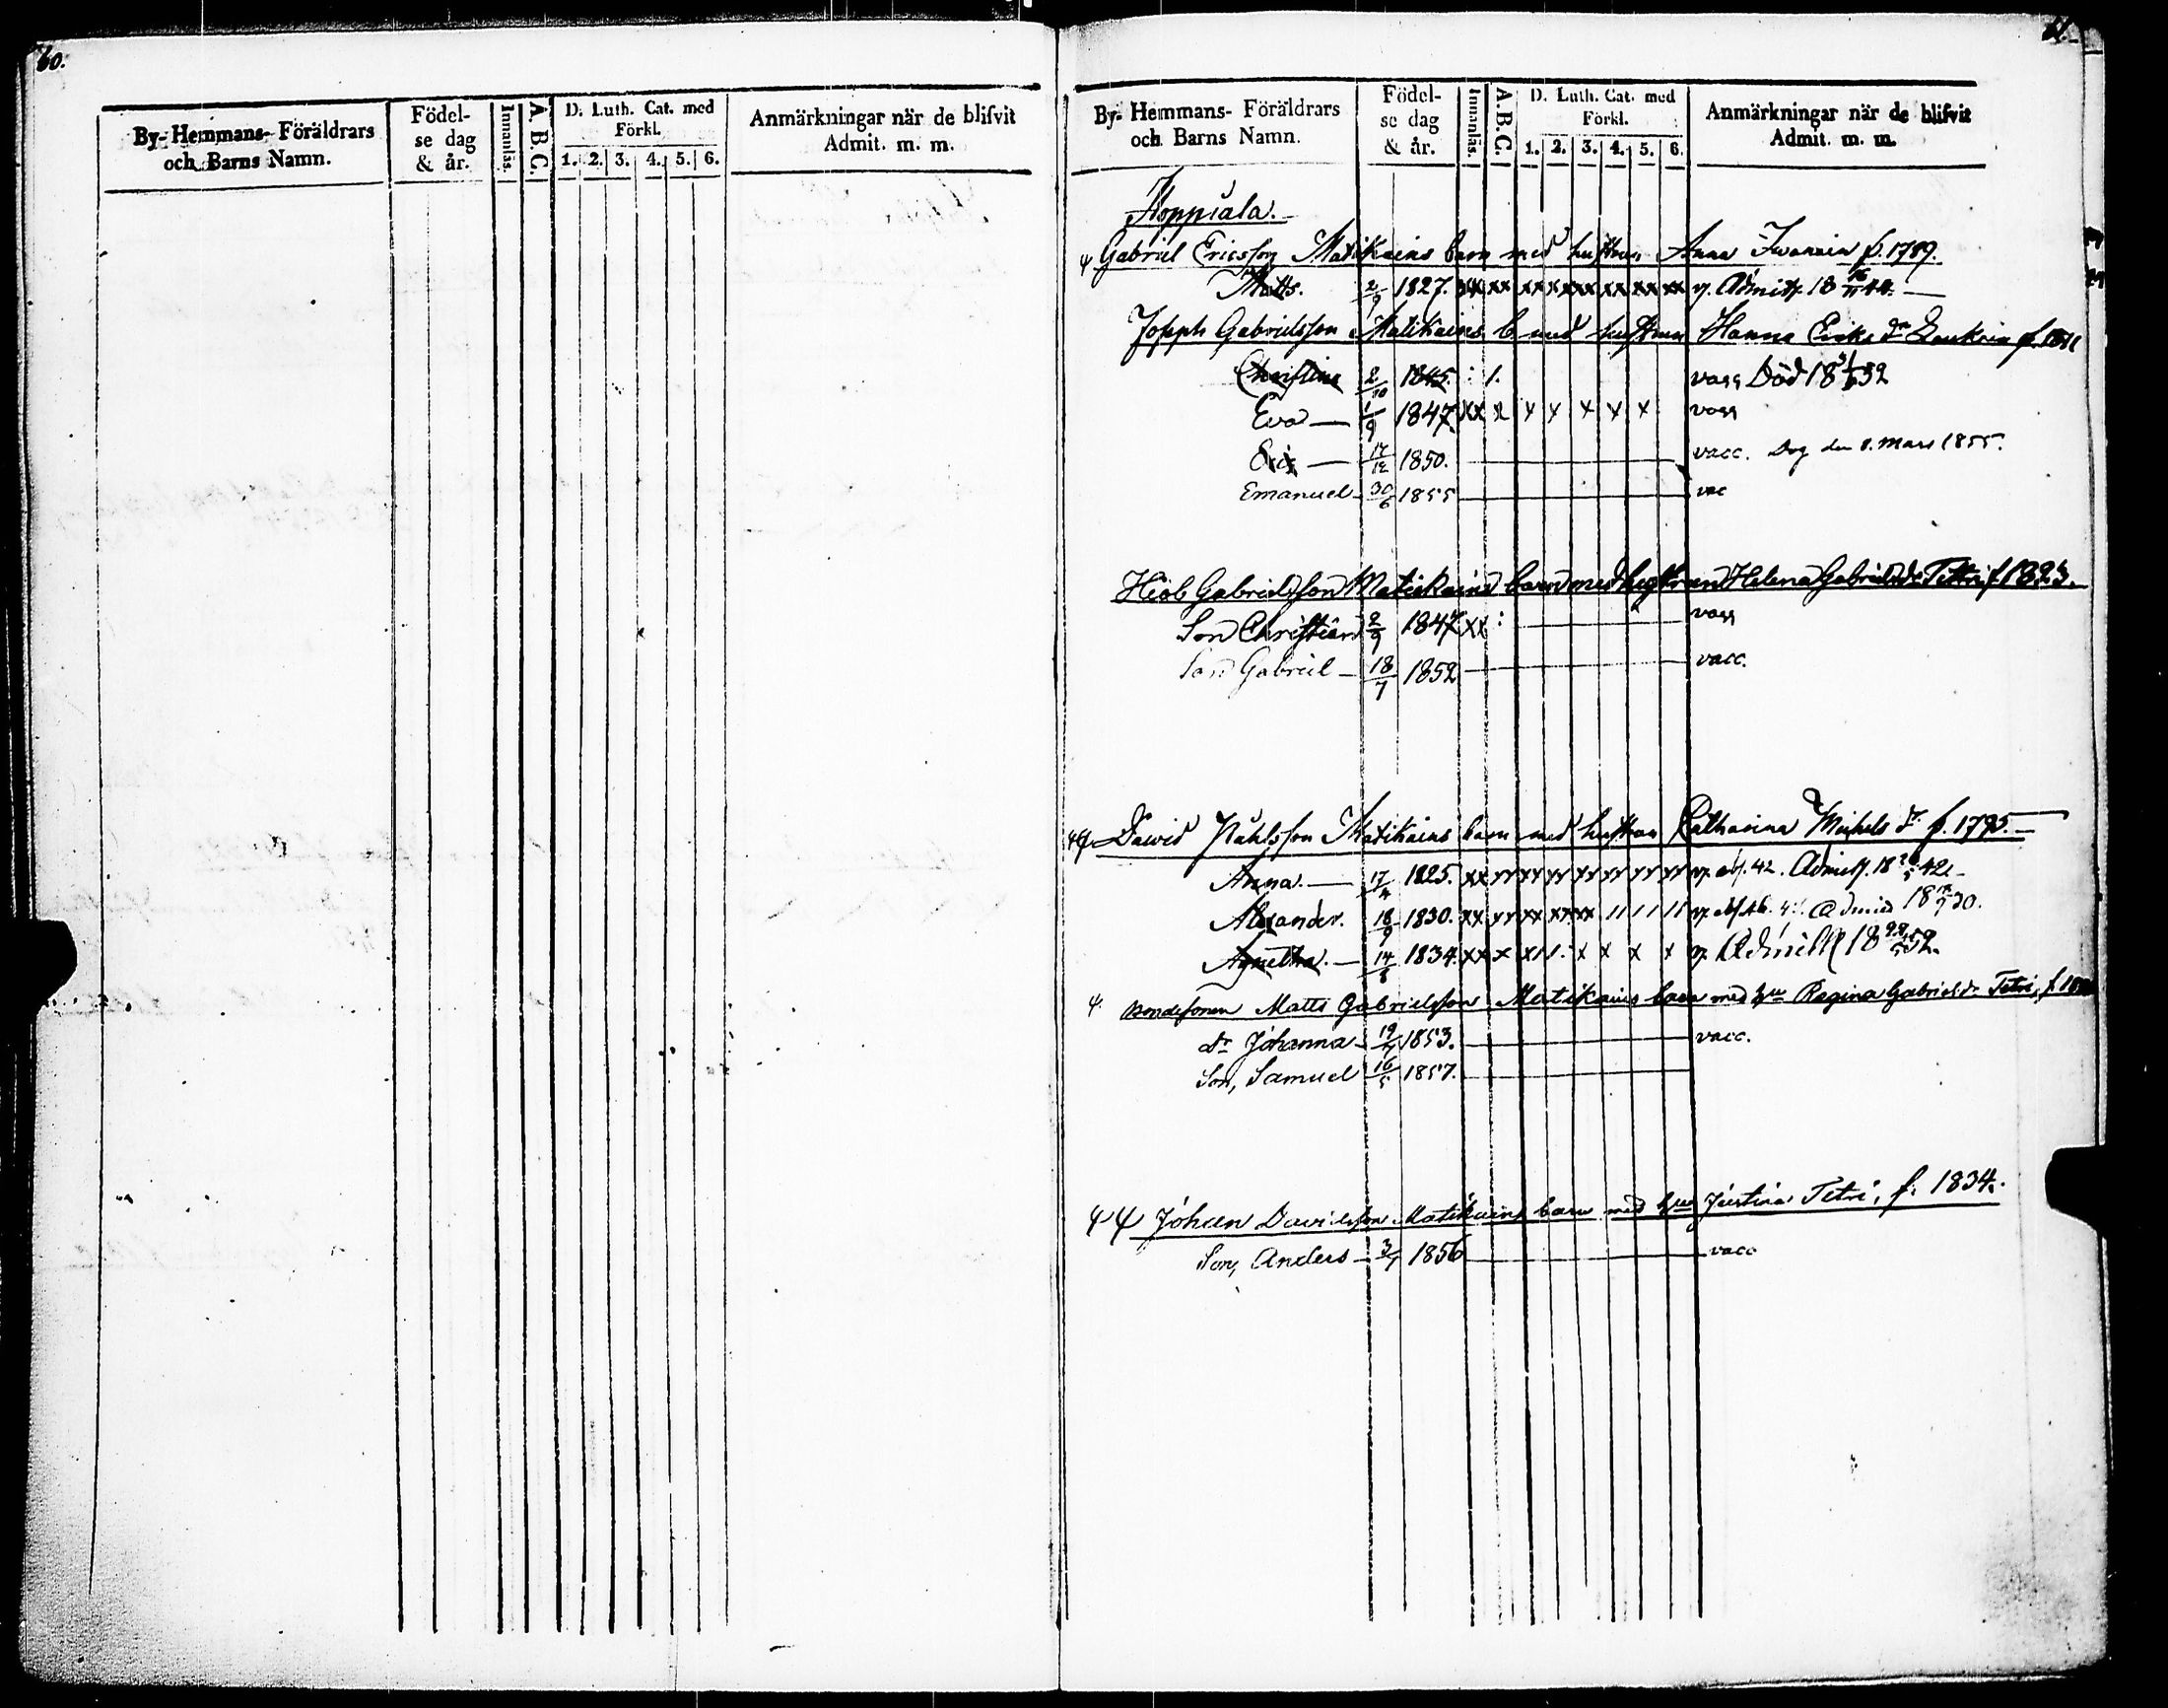 60.
By- Hemmans- Föräldrars och Barns Namn.
Födelse dag & år.
Innanläs.
A. B. C.
D. Luth. Cat. med Förkl.
1. 2. 3. 4. 5. 6.
Anmärkningar när de blifvit Admit. m. m.
61.
By- Hemmans- Föräldrars och Barns Namn.
Födelse dag & år.
Innanläs.
A. B. C.
D. Luth. Cat. med Förkl.
1. 2. 3. 4. 5. 6.
Anmärkningar när de blifvit Admit. m. m.
Hoppiala.
Gabriel Ericsson Matikains barn med hustrun Anna f. 1789.
Matts. 2/9 1827. xx xx xx xx xx xx xx xx v. Admitt. 18 44.
Joseph Gabrielsson Matikains b. med hustrun Hanna Eriks dr f. 1811
Christina 2/10 1845. : 1. vacc Död 18 52
Eva 1/9 1847. xx x x x x x x vacc
Eric 1850. vacc. Dog den 8. Mars 1855.
Emanuel 30/6 1855 vac
Hiob Gabrielsson Matikains barn med hustrun Helena Gabrielsdr Tettri f 1823.
Son Christian 2/9 1847 xx : vacc
Son Gabriel 18/7 1852 vacc.
David Påhlsson Matikains barn med hustrun Catharina Michels dr f. 1795.
Anna. 17/4 1825. v. abs. 42. Admitt. 18 42
Alexander. 18/9 1830. v. Admitt 18 50.
Agnetha. 14/8 1834. v. Admitt 18 52.
Bondesonen Matts Gabrielsson Matikains barn med hu Regina Gabrielsdr Tetri, f.
dr Johanna 19/4 1853. vacc.
Son, Samuel 16/5 1857.
Johan Davidsson Matikains barn med hu Justina Tetri, f. 1834.
Son, Anders 3/7 1856 vacc